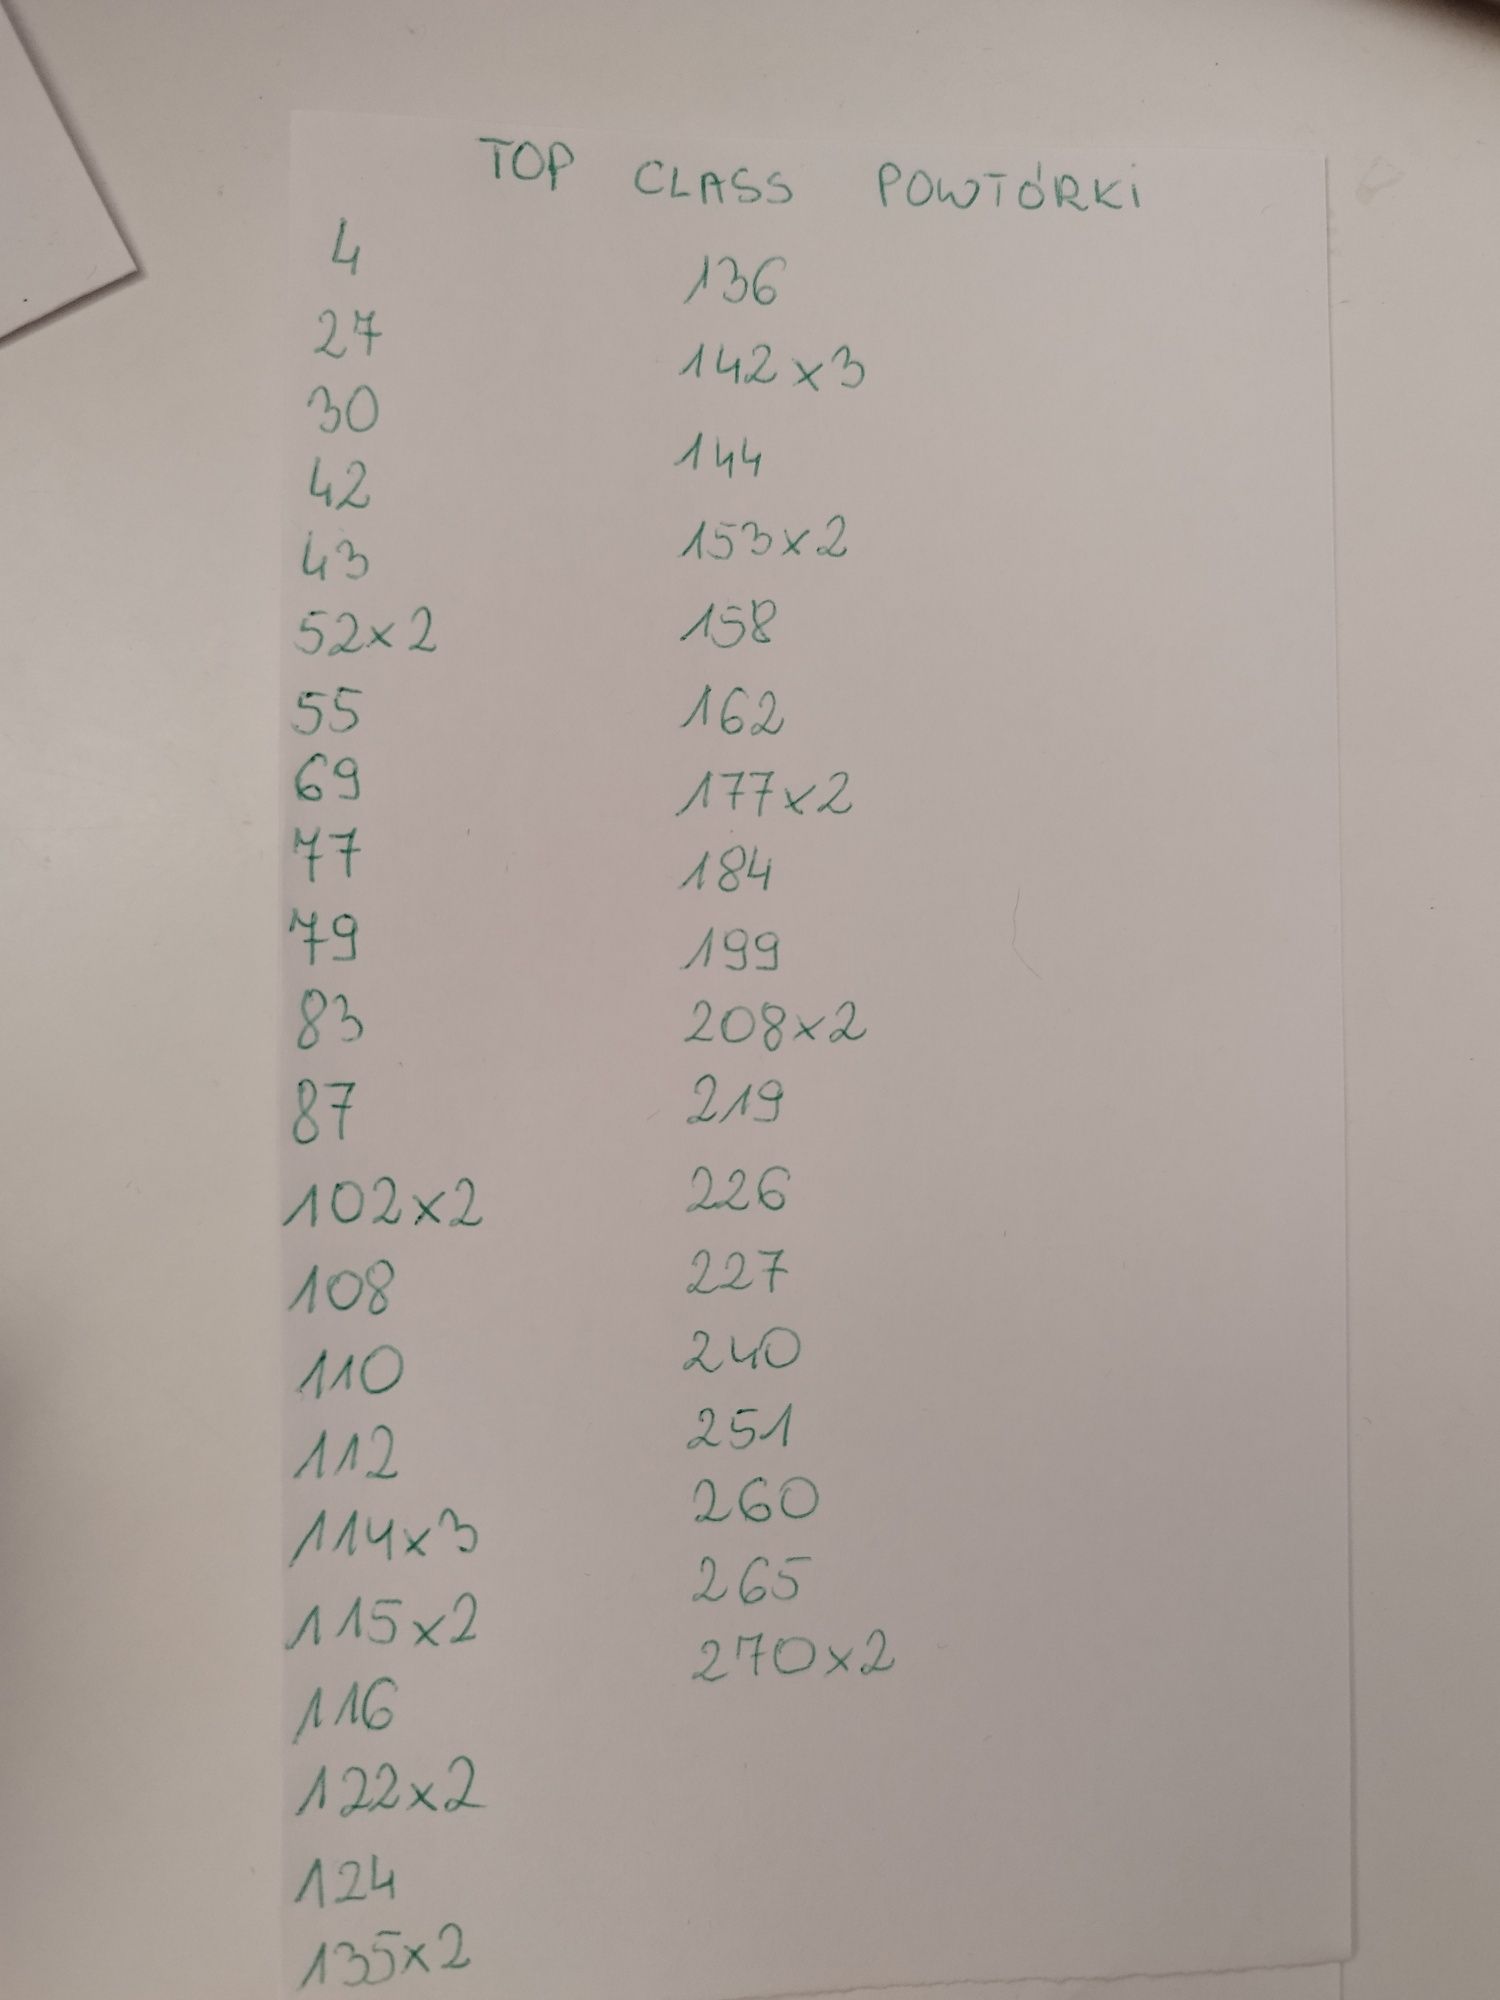 TOP CLASS POWTÓRKI
4
27
30
42
43
52x2
55
69
77
79
83
87
102x2
108
110
112
114x3
115x2
116
122x2
124
135x2
136
142x3
144
153x2
158
162
177x2
184
199
208x2
219
226
227
240
251
260
265
270x2